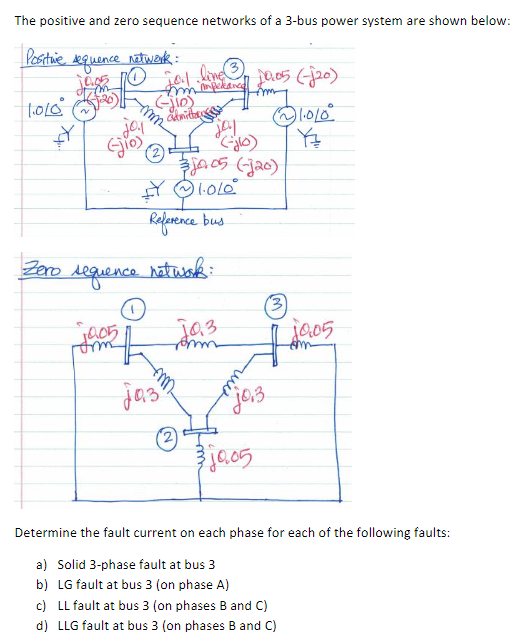 The positive and zero sequence networks of a 3-bus power system are shown below:
Positive sequence network:
j0.05 (1) j0.1 line (3) j0.05 (-j20)
(-j20) impedance
1.0∠0° (-j10) 1.0∠0°
admittance
j0.1 j0.1
(-j10) (-j10)
(2)
j0.05 (-j20)
1.0∠0°
Reference bus
Zero sequence network:
(1) (3)
j0.05 j0.3 j0.05
j0.3 j0.3
(2)
j0.05
Determine the fault current on each phase for each of the following faults:
a) Solid 3-phase fault at bus 3
b) LG fault at bus 3 (on phase A)
c) LL fault at bus 3 (on phases B and C)
d) LLG fault at bus 3 (on phases B and C)